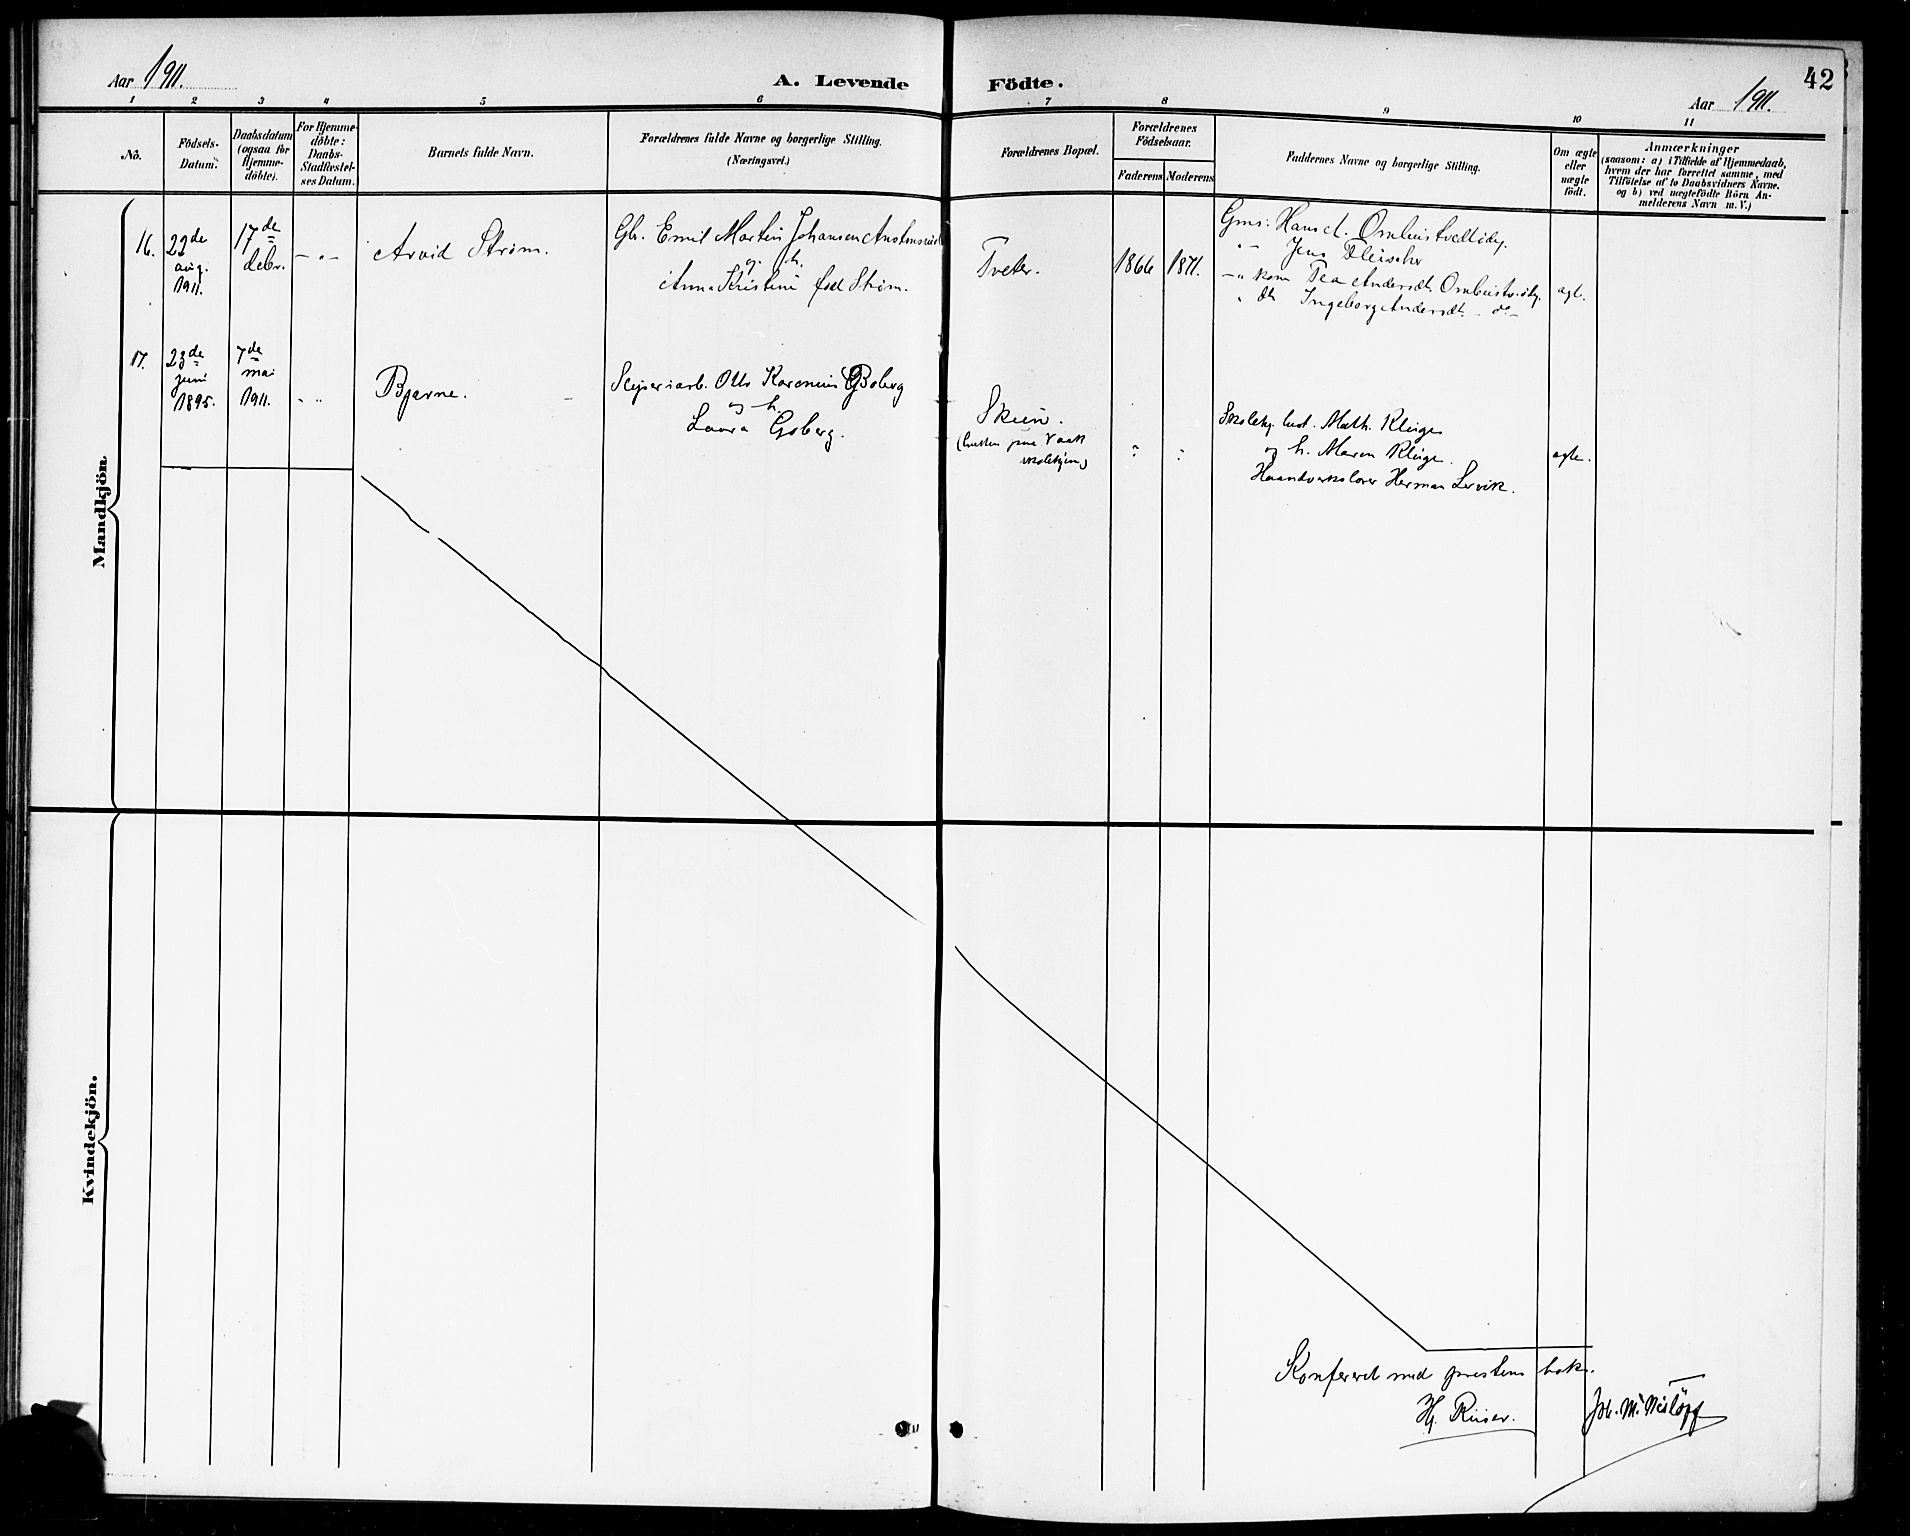 Aar 1911.
A. Levende Födte.
42
Aar 1911.
1 2 3 4 5 6 7 8 9 10 11
No.
Födsels-
Datum.
Daabsdatum
(ogsaa for
Hjemme-
döbte).
For Hjemme-
döbte:
Daabs-
Stadfæstel-
ses Datum.
Barnets fulde Navn.
Forældrenes fulde Navne og borgerlige Stilling.
(Næringsvei.)
Forældrenes Bopæl.
Forældrenes
Födselsaar.
Faderens Moderens
Faddernes Navne og borgerlige Stilling.
Om ægte
eller
uægte
födt.
Anmærkninger
(saasom: a) i Tilfælde af Hjemmedaab,
hvem der har forrettet samme, med
Tilföielse af to Daabsvidners Navne.
og b) ved uægtefödte Börn An-
melderens Navn m. V.)
Mandkjön.
16.
22de
aug.
1911.
17de
debr.
- " -
Arvid Strøm.
Gb. Emil Martin Johansen
og h.
Anna Kristine fød Strøm.
Tveter.
1866
1871.
Gms: Hans
" Jens Fleischer
kone Tea Andersdt.
" Ingeborg Andersdt. - do -
ægte.
17.
23de
juni
1895.
7de
mai
1911.
- "
Bjarne.
Otto Karenius Goberg
og h.
Laura Goberg.
Skien.
skolehjem)
Math. Kluge
og h. Maren Kluge.
Haandverkslærer Herman Lervik.
ægte.
Kvindekjön.
Konferert med prestens bok.
Hj. Riiser.
Joh. M.